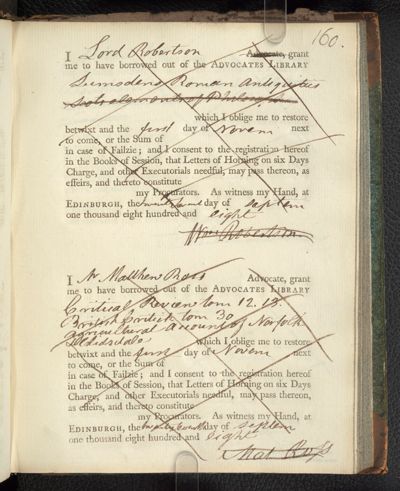 160.
I Lord Robertson Advocate, grant
me to have borrowed out of the ADVOCATES LIBRARY
Lumsdens Roman Antiquities
which I oblige me to restore
betwixt and the first day of Novem next
to come, or the Sum of
in case of Failzie; and I consent to the registration hereof
in the Books of Session, that Letters of Horning on six Days
Charge, and other Executorials needful, may pass thereon, as
effeirs, and thereto constitute
my Procurators. As witness my Hand, at
EDINBURGH, the day of septem
one thousand eight hundred and eight
Robertson
I Mr Matthew Ross Advocate, grant
me to have borrowed out of the ADVOCATES LIBRARY
Critical Review tom 12. 13.
British Critick tom 30
Agricultural Account of Norfolk
which I oblige me to restore
betwixt and the first day of Novem next
to come, or the Sum of
in case of Failzie; and I consent to the registration hereof
in the Books of Session, that Letters of Horning on six Days
Charge, and other Executorials needful, may pass thereon,
as effeirs, and thereto constitute
my Procurators. As witness my Hand, at
EDINBURGH, the day of septem
one thousand eight hundred and eight
Mat. Ross